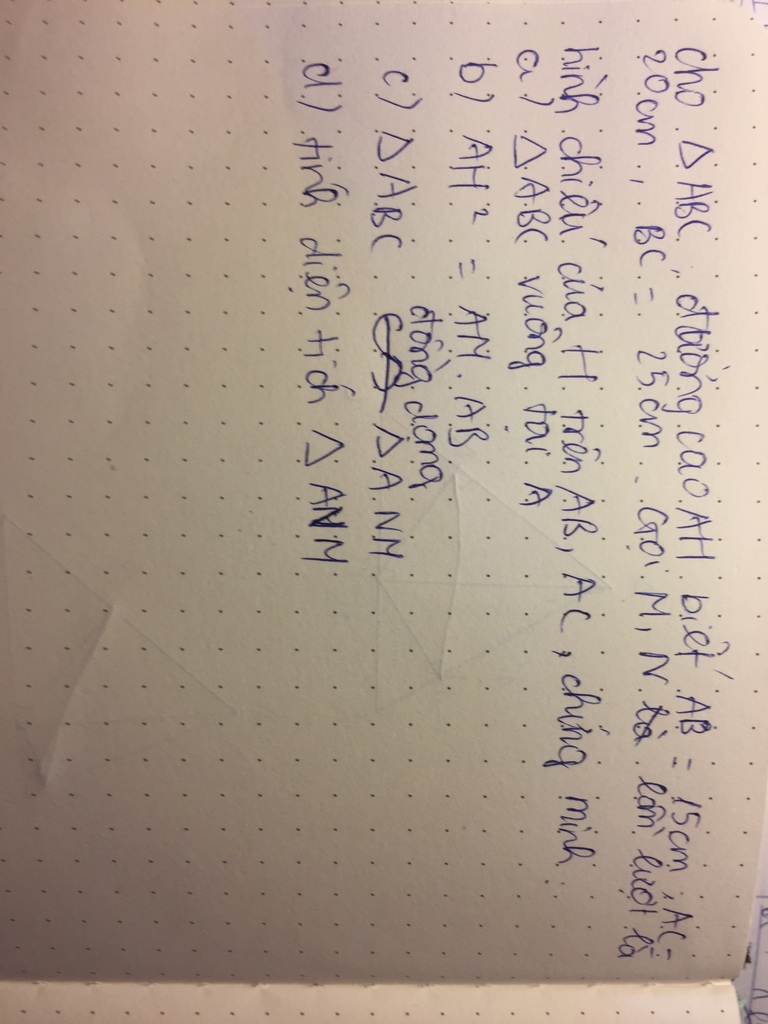 Cho Δ ABC, đường cao AH biết AB = 15cm, AC =
20cm, BC = 25cm. Gọi M, N lần lượt là
hình chiếu của H trên AB, AC, chứng minh:
a) Δ ABC vuông tại A
b) AH² = AM. AB
c) Δ ABC đồng dạng Δ ANM
d) tính diện tích Δ ANM